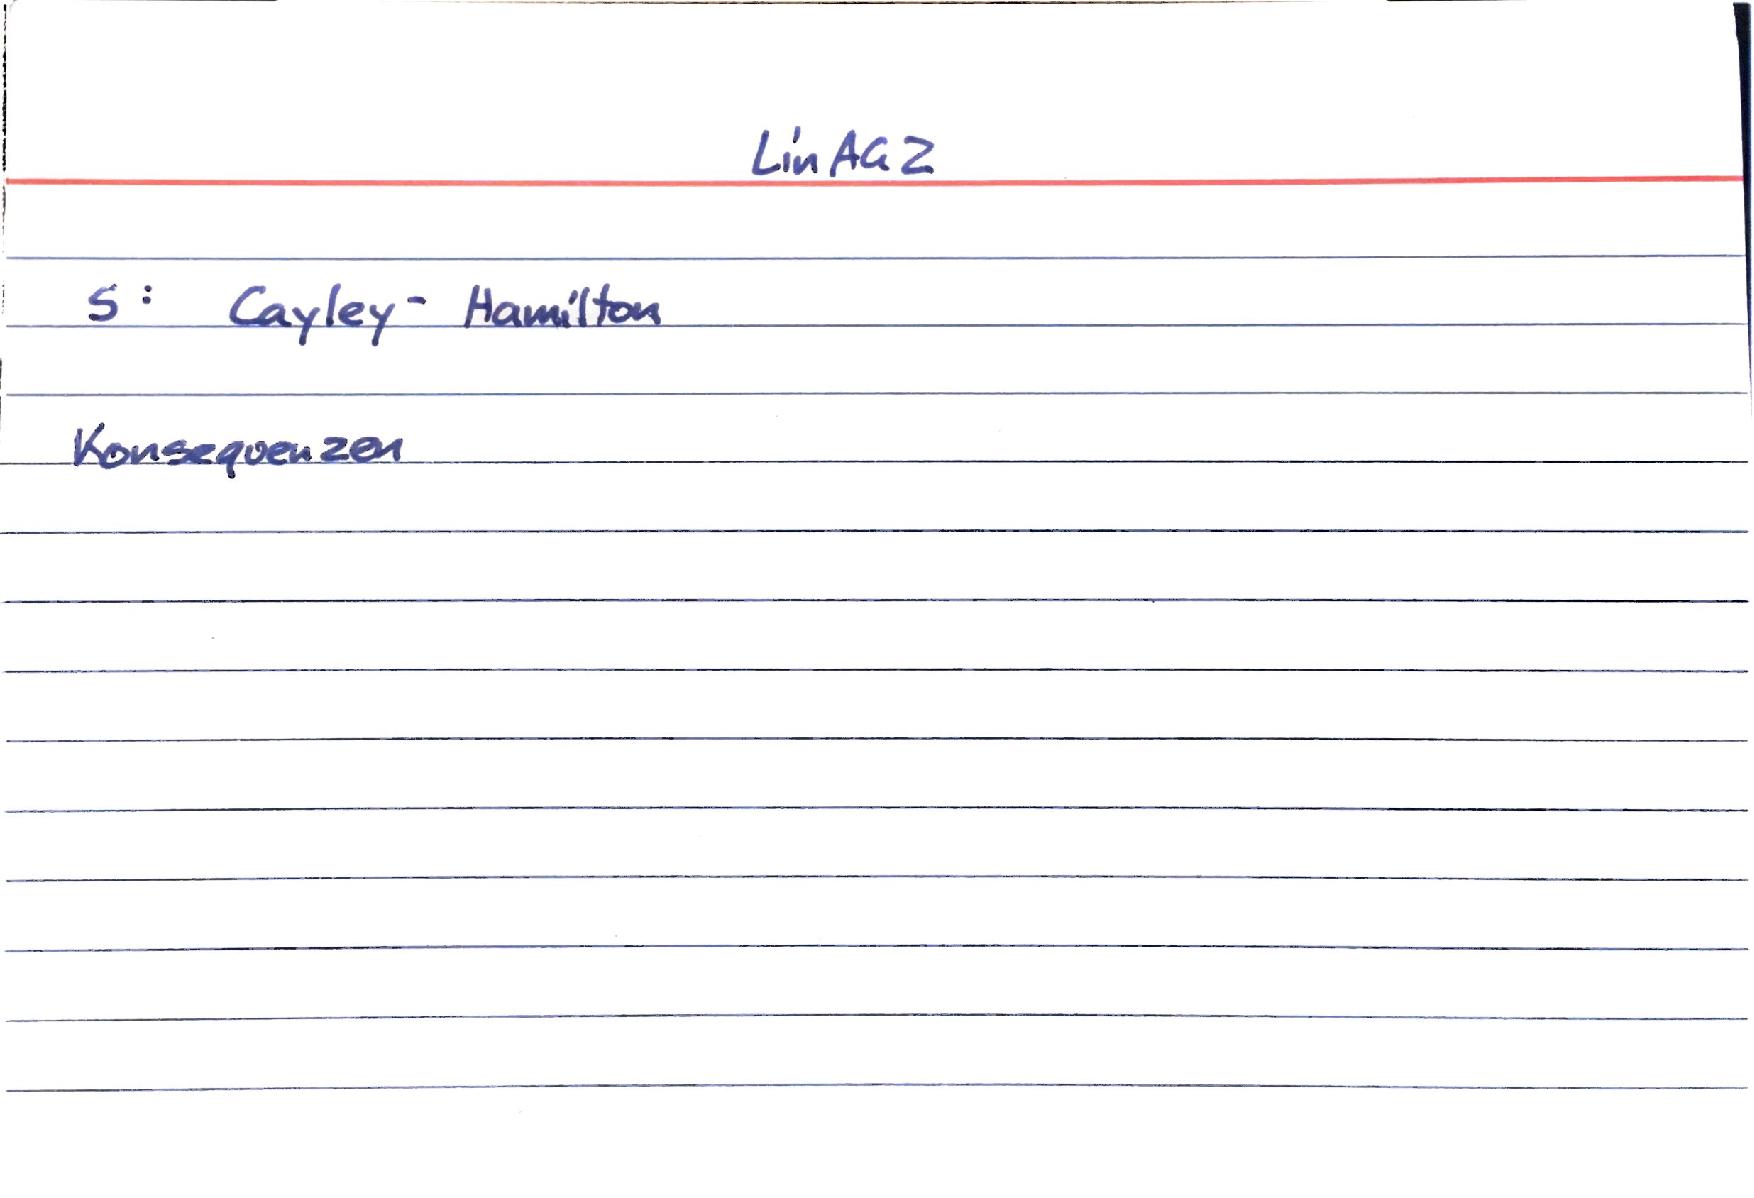 LinAG 2
S: Cayley-Hamilton
Konsequenzen